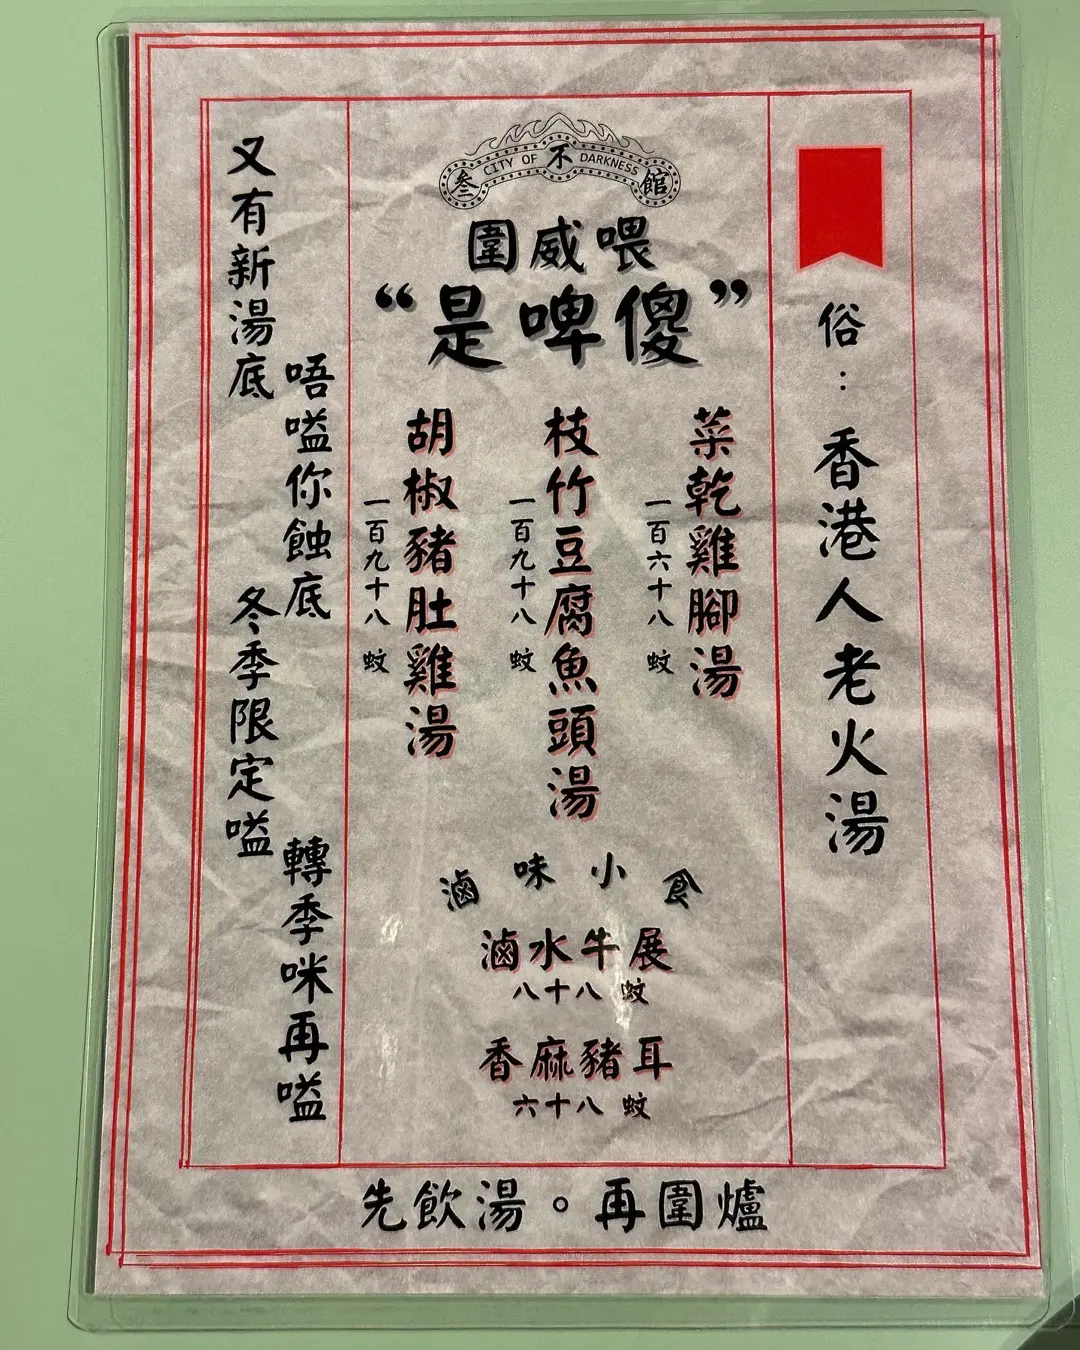 CITY OF DARKNESS
叁不館
圍威喂
“是啤傻”
俗：香港人老火湯
菜乾雞腳湯
一百六十八 蚊
枝竹豆腐魚頭湯
一百九十八 蚊
胡椒豬肚雞湯
一百九十八 蚊
滷味小食
滷水牛展
八十八 蚊
香麻豬耳
六十八 蚊
又有新湯底
唔嗌你蝕底
冬季限定嗌
轉季咪再嗌
先飲湯。再圍爐